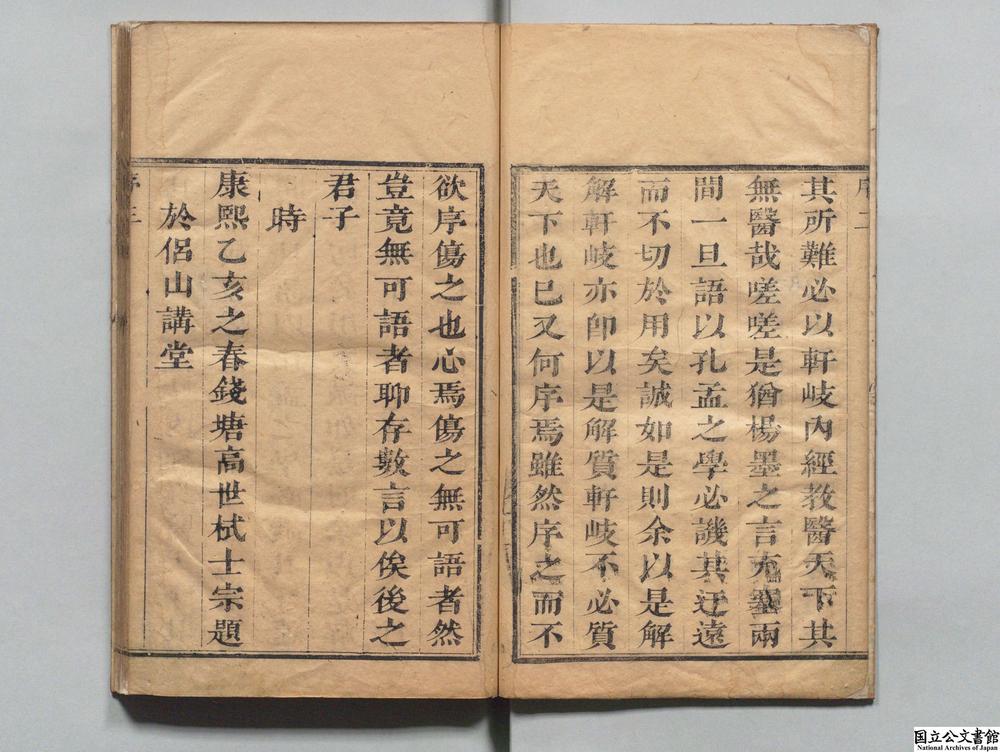 序二
其所難必以軒岐內經教醫天下其
無醫哉嗟嗟是猶楊墨之言充塞兩
間一旦語以孔孟之學必譏其迂遠
而不切於用矣誠如是則余以是解
解軒岐亦卽以是解質軒岐不必質
天下也已又何序焉雖然序之而不
欲序傷之也心焉傷之無可語者然
豈竟無可語者聊存數言以俟後之
君子
時
康熙乙亥之春錢塘高世栻士宗題
於侶山講堂
序三
国立公文書館
National Archives of Japan